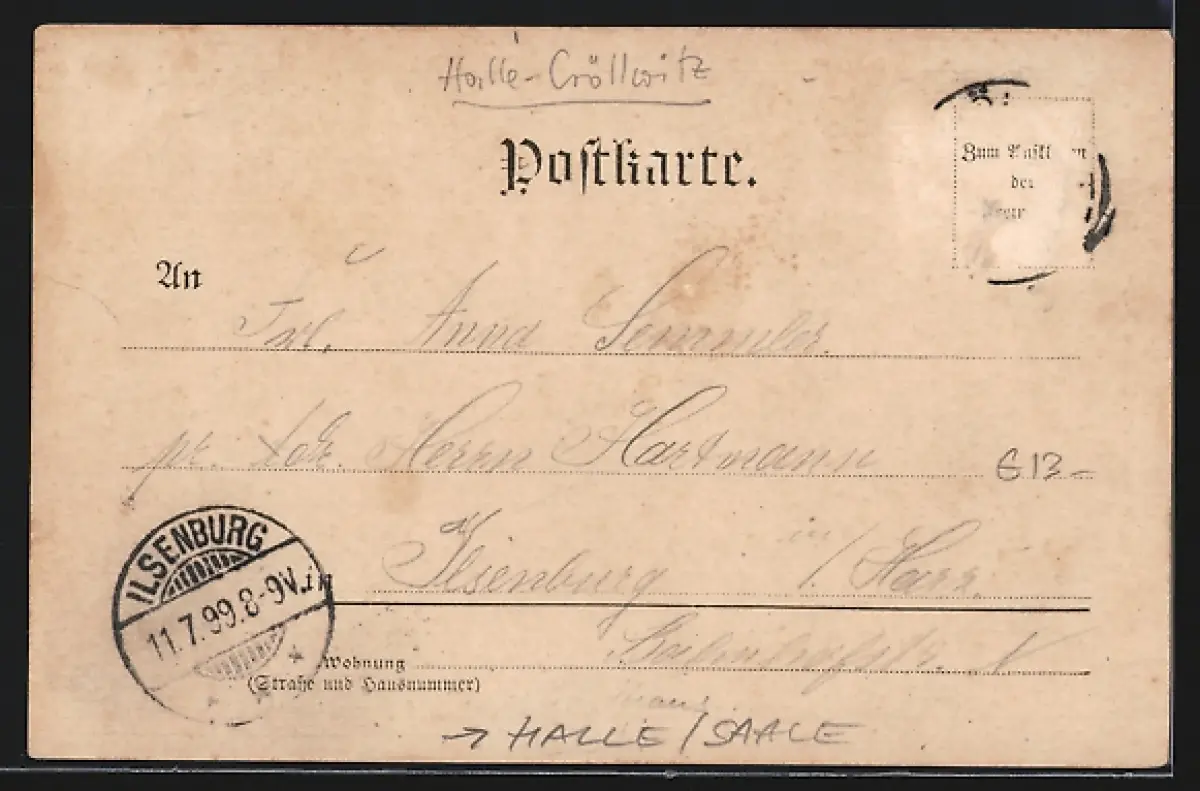 Halle-Cröllwitz
Postkarte.
Zum
der
An
Frl. Anna Semmler.
pr. Adr. Herrn Hartmann
G 13-
ILSENBURG
11.7.99.8-9V.
in
Ilsenburg i/ Harz.
Wohnung
(Straße und Hausnummer)
→ HALLE / SAALE